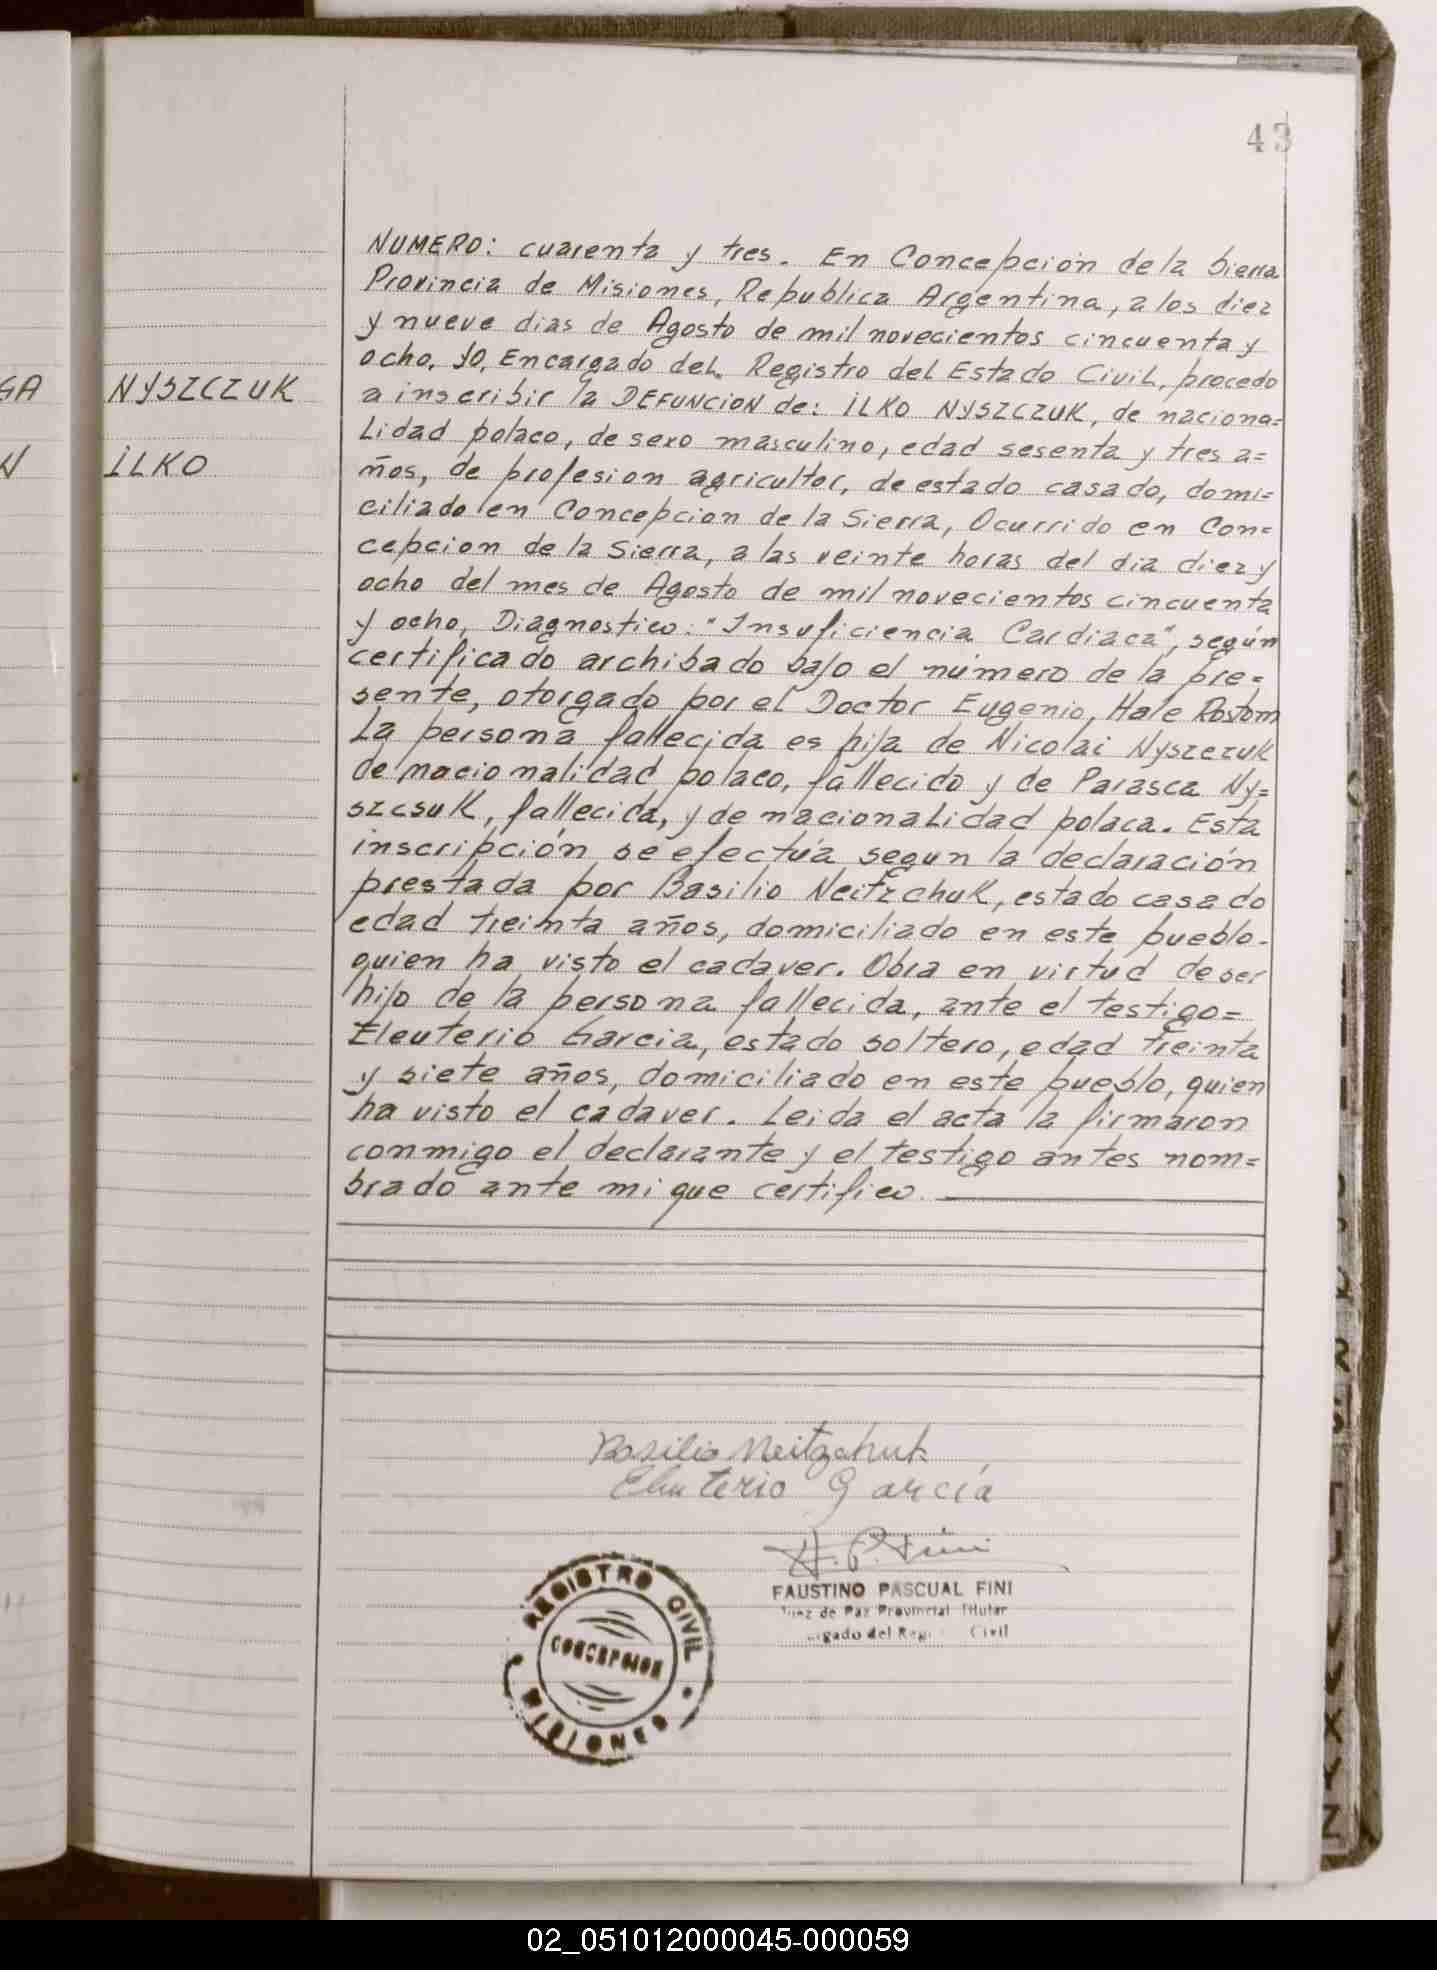 43
GA
N
NYSZCZUK
ILKO
NUMERO: cuarenta y tres. En Concepción de la Sierra
Provincia de Misiones, Republica Argentina, a los diez
y nueve dias de Agosto de mil novecientos cincuenta y
ocho, yo, Encargado del Registro del Estado Civil, procedo
a inscribir la DEFUNCION de: ILKO NYSZCZUK, de naciona=
lidad polaco, de sexo masculino, edad sesenta y tres a=
ños, de profesion agricultor, de estado casado, domi=
ciliado en Concepcion de la Sierra, Ocurrido en Con=
cepcion de la Sierra, a las veinte horas del dia diez y
ocho del mes de Agosto de mil novecientos cincuenta
y ocho, Diagnostico: "Insuficiencia Cardiaca", según
certificado archibado bajo el número de la pre=
sente, otorgado por el Doctor Eugenio, Hale Rostom
La persona fallecida es hija de Nicolai Nyszczuk
de nacionalidad polaco, fallecido y de Parasca Ny=
szcsuk, fallecida, y de nacionalidad polaca. Esta
inscripción se efectúa segun la declaración
prestada por Basilio Neitzchuk, estado casado
edad treinta años, domiciliado en este pueblo.
quien ha visto el cadaver. Obra en virtud de ser
hijo de la persona fallecida, ante el testigo=
Eleuterio Garcia, estado soltero, edad treinta
y siete años, domiciliado en este pueblo, quien
ha visto el cadaver. Leida el acta la firmaron
conmigo el declarante y el testigo antes nom=
brado ante mi que certifico.
Basilio Neitzchuk
Eleuterio García
FAUSTINO PASCUAL FINI
Juez de Paz Provincial Titular
Civil
REGISTRO CIVIL
CONCEPCION
MISIONES
02_051012000045-000059